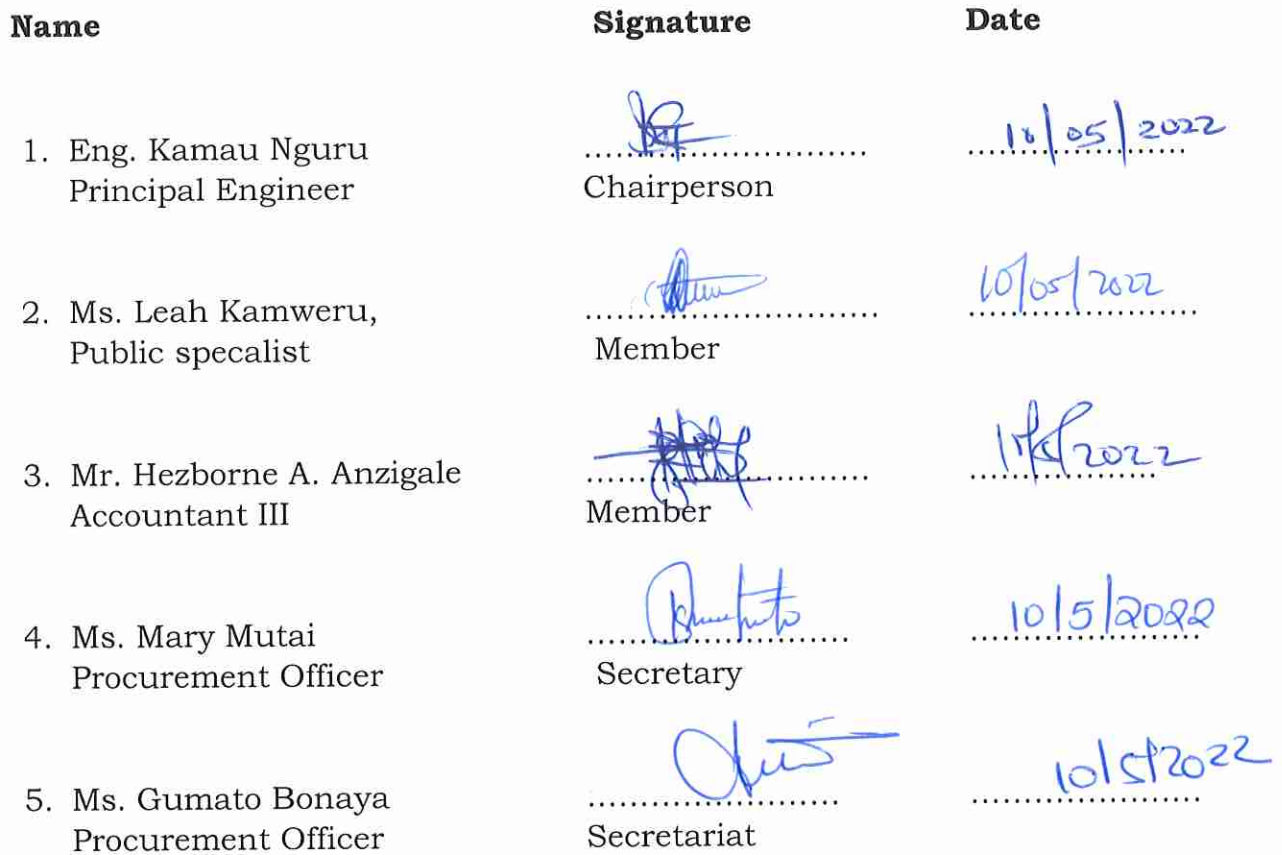 Name Signature Date
10/05/2022
1. Eng. Kamau Nguru ..............................
Principal Engineer Chairperson
10/05/2022
2. Ms. Leah Kamweru, ..............................
Public specalist Member
2022
3. Mr. Hezborne A. Anzigale ..............................
Accountant III Member
10/5/2022
4. Ms. Mary Mutai ..............................
Procurement Officer Secretary
10/5/2022
5. Ms. Gumato Bonaya ..............................
Procurement Officer Secretariat